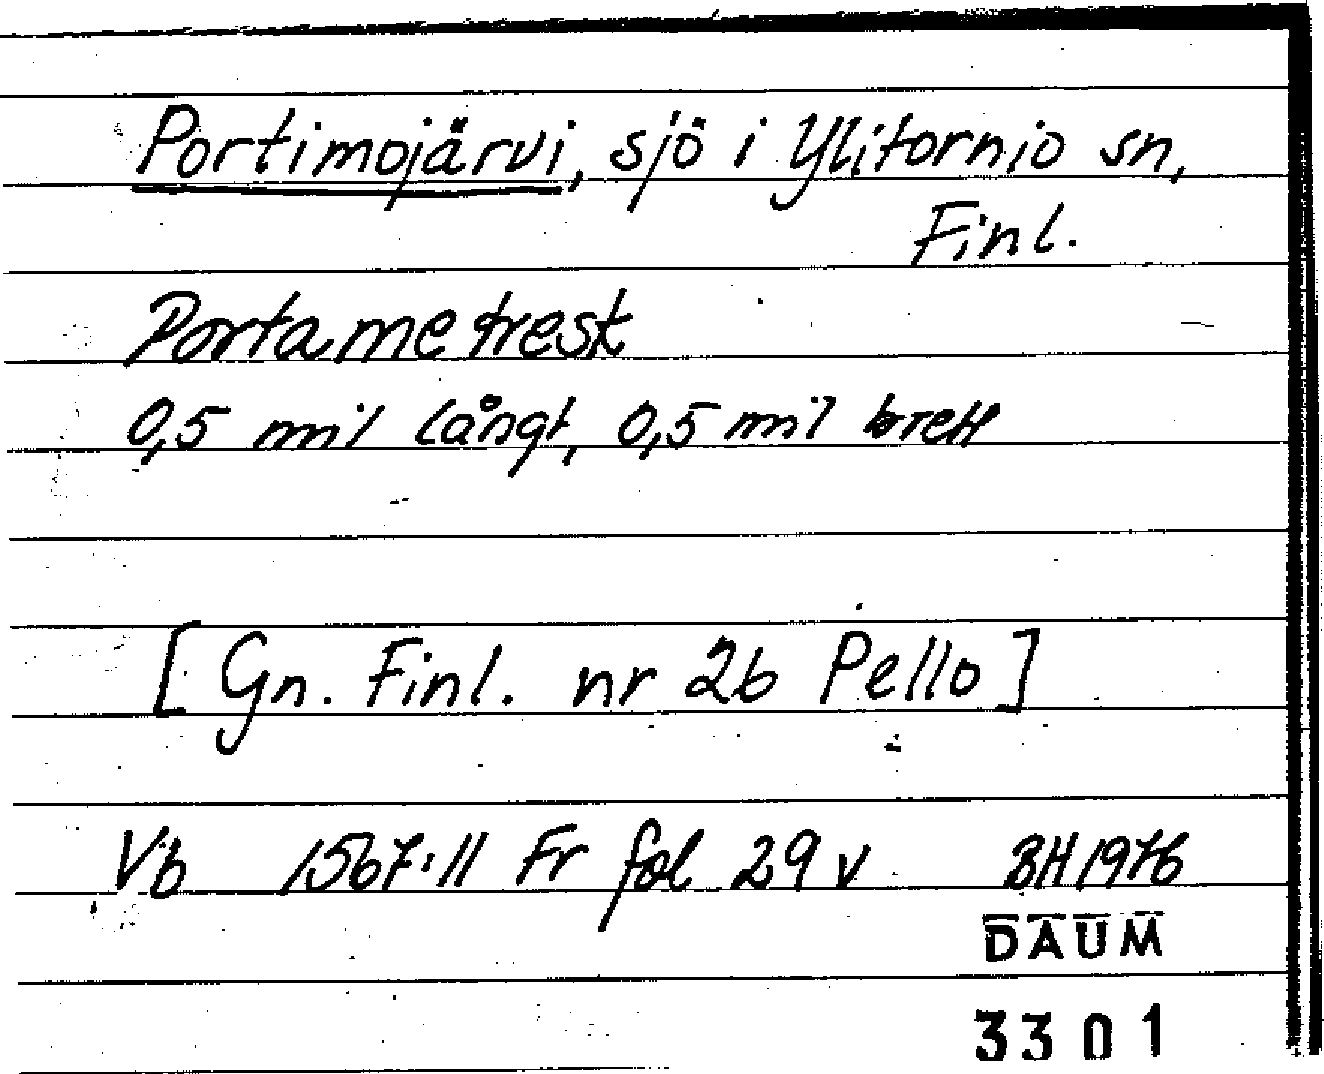 Portimojärvi, sjö i Ylitornio sn,
Finl.
Portame tresk
0,5 mil långt, 0,5 mil brett
[Gn. Finl. nr 2b Pello]
Vb 1567:11 Fr fol 29 v BH 1976
DAUM
3301